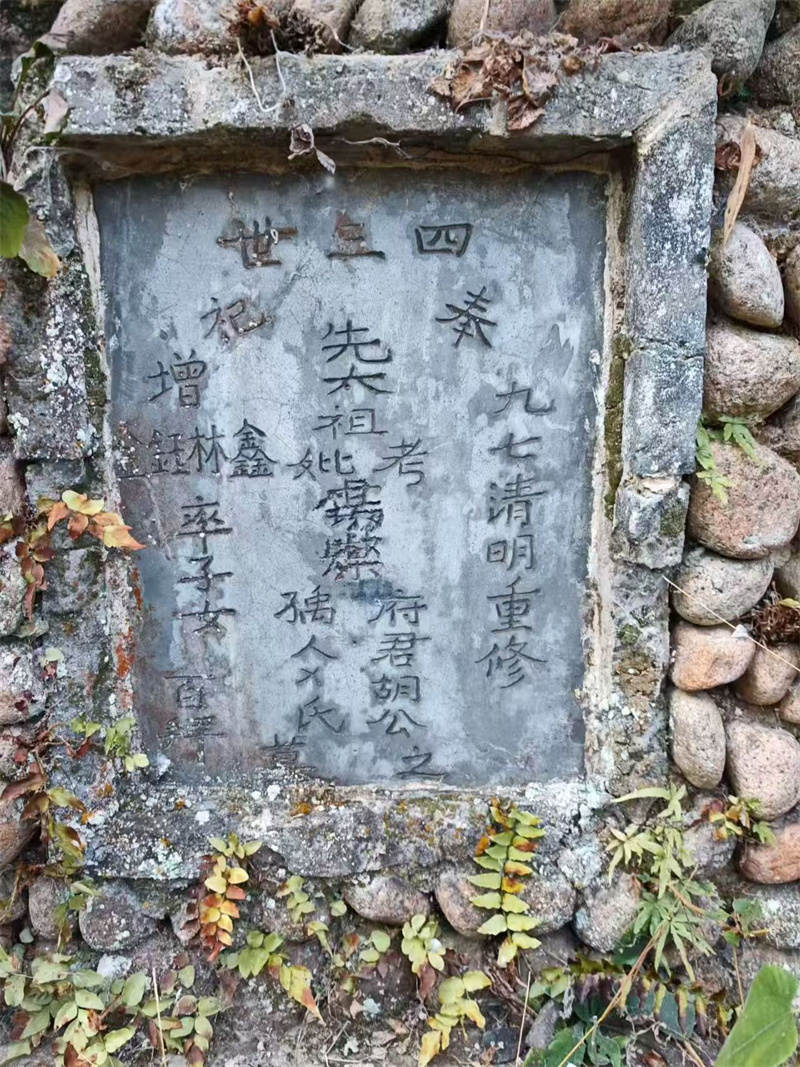 四三世
奉祀
九七清明重修
先太祖
考
妣
府君胡公
孺人
氏
之
墓
增
鑫林鈺金
率子女
百拜